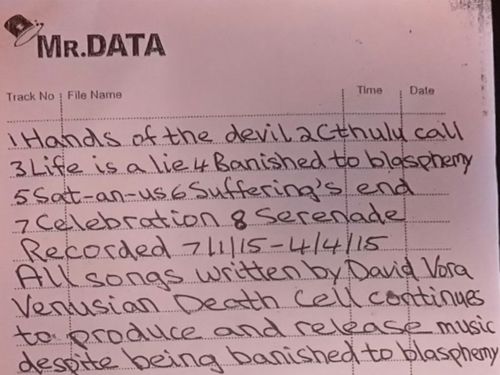 MR.DATA
Track No File Name Time Date
1 Hands of the devil 2 Cthulu call
3 Life is a lie 4 Banished to blasphemy
5 Sat-an-us 6 Suffering's end
7 Celebration 8 Serenade
Recorded 7/1/15-4/4/15
All songs written by David Vora
Venusian Death Cell continues
to produce and release music
despite being banished to blasphemy